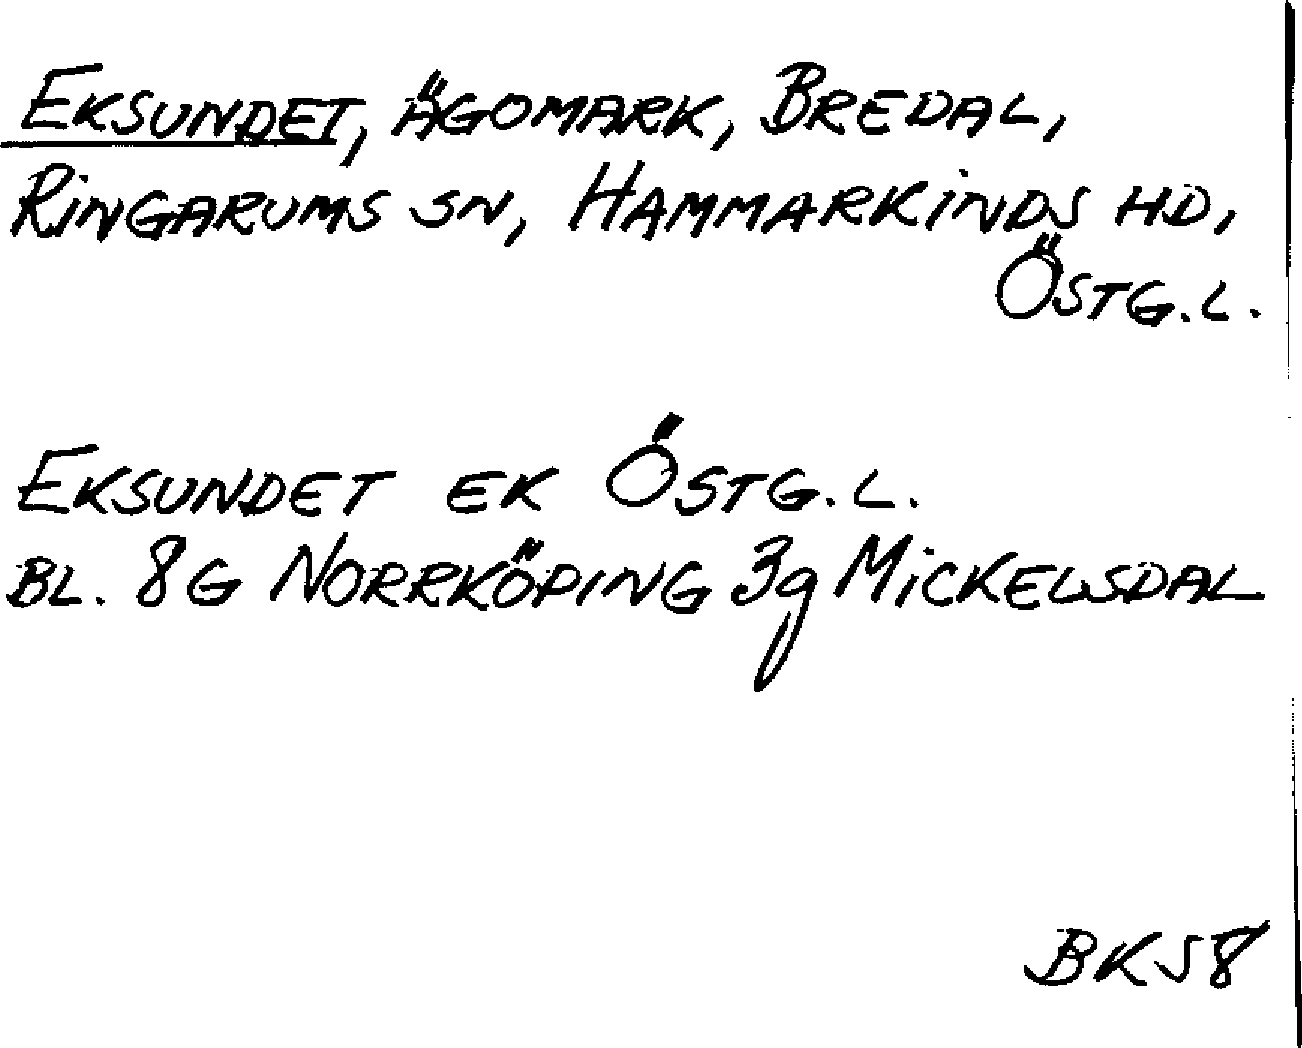 EKSUNDET, ÄGOMARK, BREDAL,
RINGARUMS SN, HAMMARKINDS HD,
ÖSTG.L.
EKSUNDET EK ÖSTG.L.
BL. 8G NORRKÖPING 3g MICKELSDAL
BK58